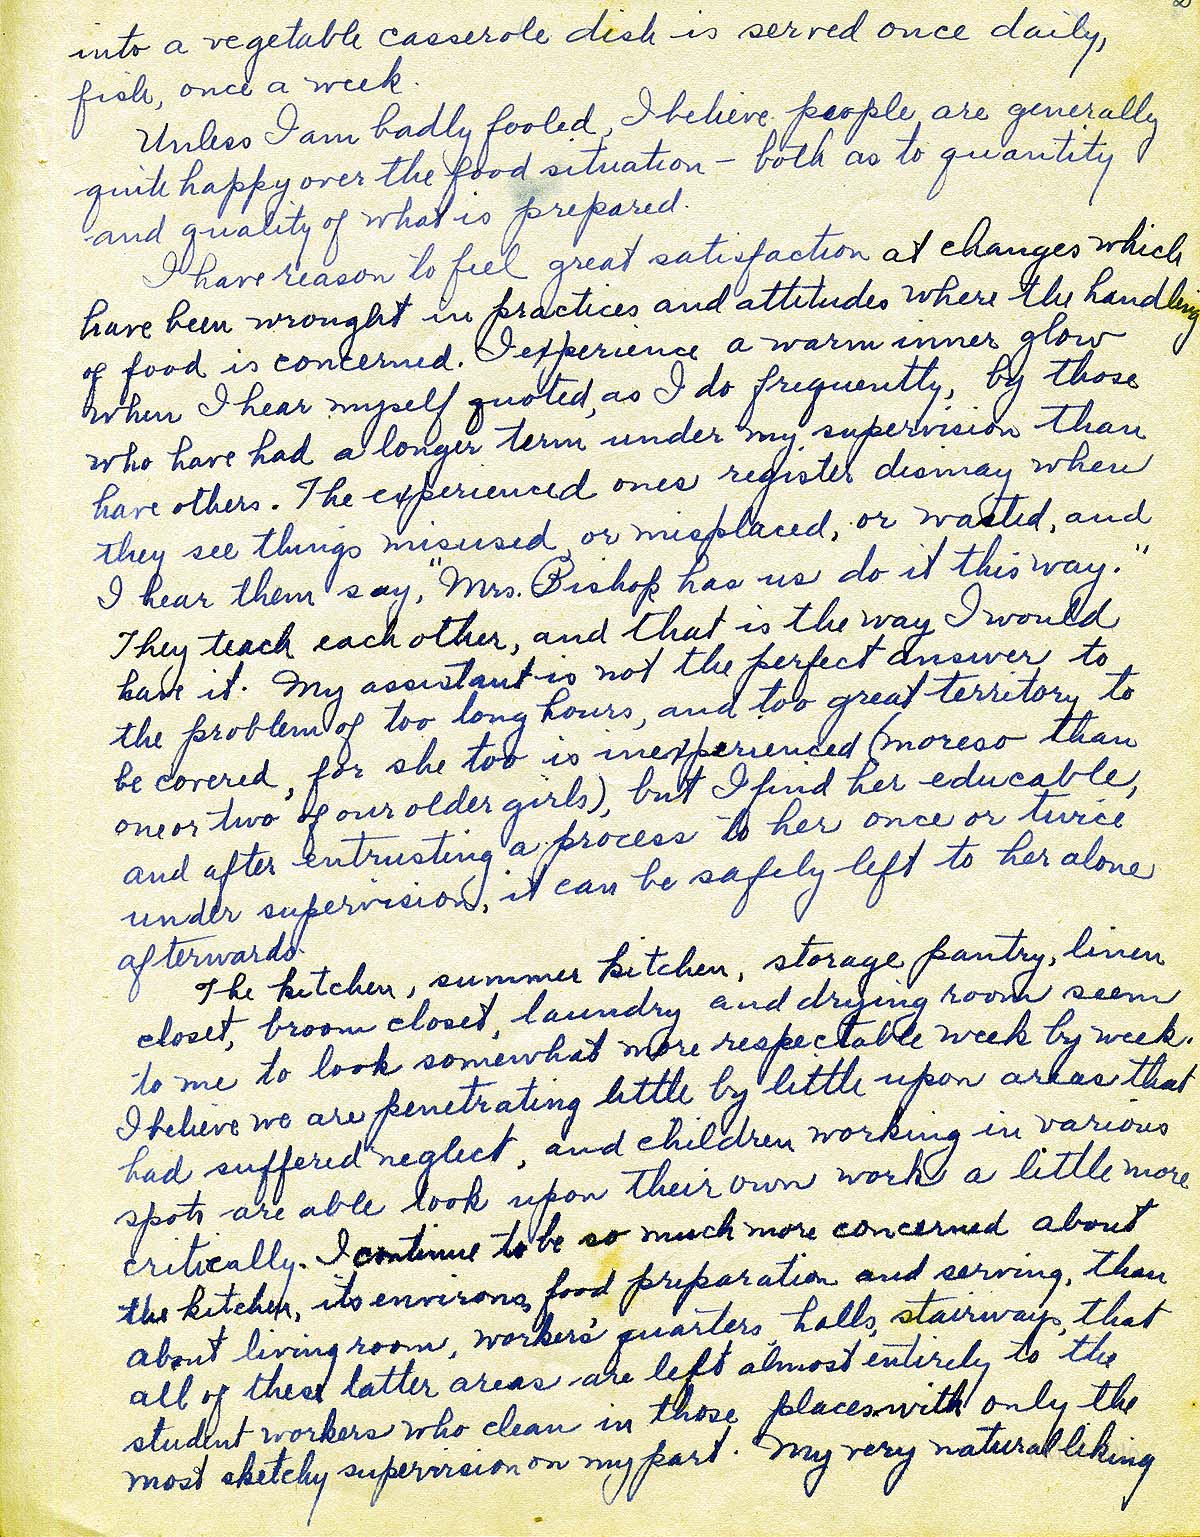 2
into a vegetable casserole dish is served once daily,
fish, once a week.
Unless I am badly fooled, I believe people are generally
quite happy over the food situation – both as to quantity
and quality of what is prepared.
I have reason to feel great satisfaction at changes which
have been wrought in practices and attitudes where the handling
of food is concerned. I experience a warm inner glow
when I hear myself quoted, as I do frequently, by those
who have had a longer term under my supervision than
have others. The experienced ones register dismay when
they see things misused, or misplaced, or wasted, and
I hear them say, "Mrs. Bishop has us do it this way."
They teach each other, and that is the way I would
have it. My assistant is not the perfect answer to
the problem of too long hours, and too great territory to
be covered, for she too is inexperienced (moreso than
one or two of our older girls), but I find her educable,
and after entrusting a process to her once or twice
under supervision, it can be safely left to her alone
afterwards.
The kitchen, summer kitchen, storage pantry, linen
closet, broom closet, laundry and drying room seem
to me to look somewhat more respectable week by week.
I believe we are penetrating little by little upon areas that
had suffered neglect, and children working in various
spots are able look upon their own work a little more
critically. I continue to be so much more concerned about
the kitchen, its environs, food preparation and serving, than
about living room, workers' quarters, halls, stairways, that
all of these latter areas are left almost entirely to the
student workers who clean in those places with only the
most sketchy supervision on my part. My very natural liking